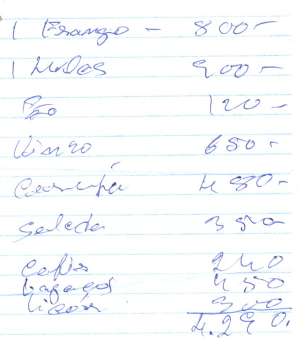 1 Frango - 800-
1 Lulas 900-
Pão 120-
Vinho 650-
480-
Salada 350-
Cafés 240
bagaços 450
licor 300
4.290.